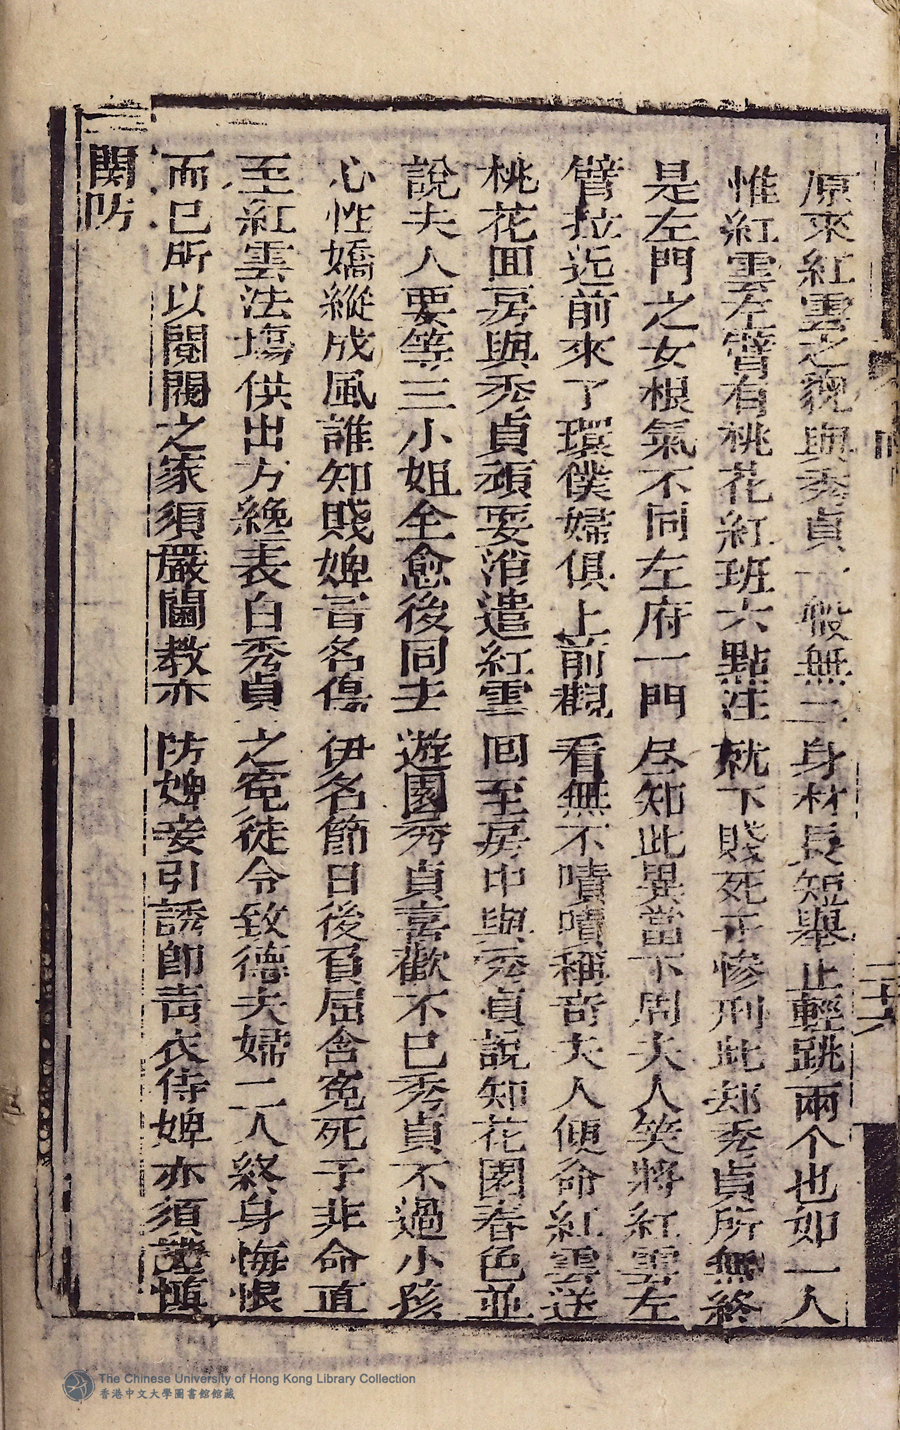 原來紅雲之貌與秀貞一般無二身材長短舉止輕跳兩个也如一人
惟紅雲左臂有桃花紅班六點注就下賤死于慘刑此却秀貞所無終
是左門之女根氣不同左府一門尽知此異當下周夫人笑將紅雲左
臂拉近前來了環僕婦俱上前觀看無不嘖嘖稱奇夫人便命紅雲送
桃花回房與秀貞頑耍消遣紅雲回至房中與秀貞說知花園春色並
說夫人要等三小姐全愈後同去遊園秀貞喜歡不已秀貞不過小孩
心性嬌縱成風誰知賤婢冒名傷伊名節日後負屈含冤死于非命直
至紅雲法塲供出方纔表白秀貞之冤徒令致德夫婦二人終身悔恨
而已所以閥閱之家須嚴閫教亦防婢妾引誘即靑衣侍婢亦須謹慎
関防
二十八
The Chinese University of Hong Kong Library Collection
香港中文大學圖書館館藏